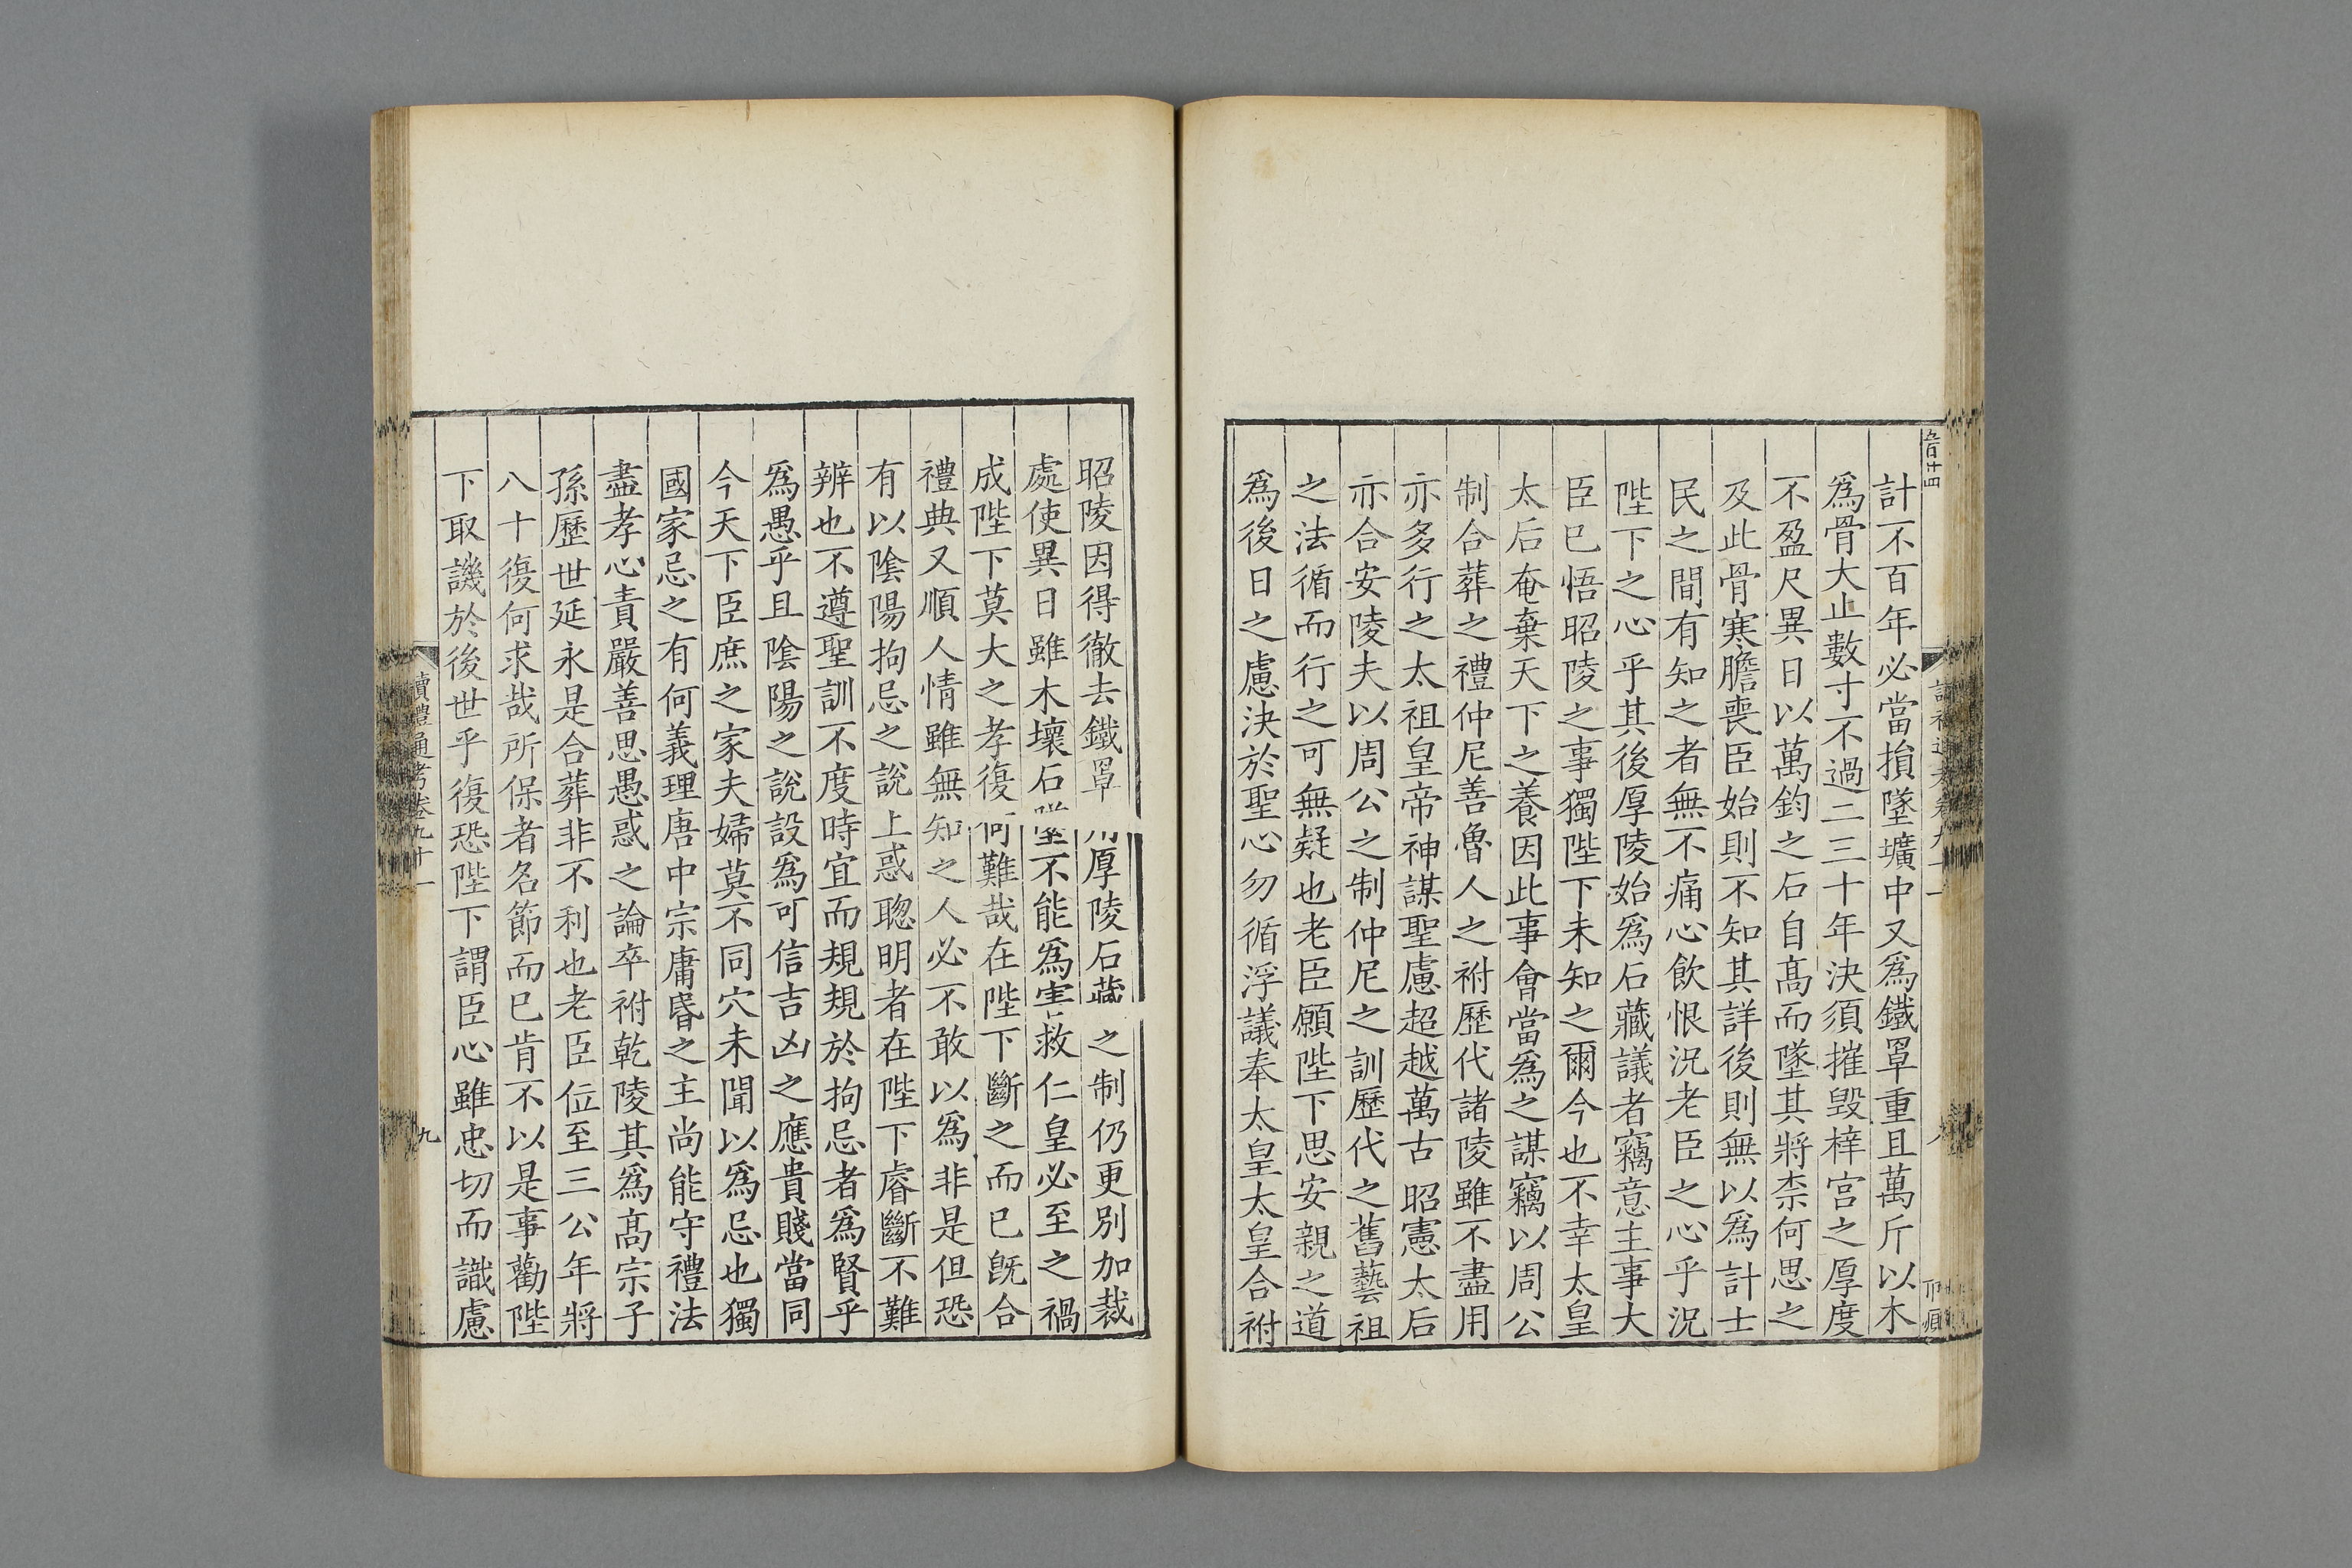 計不百年必當損墜壙中又爲鐵罩重且萬斤以木
爲骨大止數寸不過二三十年決須摧毀梓宮之厚度
不盈尺異日以萬鈞之石自高而墜其將柰何思之
及此骨寒膽喪臣始則不知其詳後則無以爲計士
民之間有知之者無不痛心飲恨況老臣之心乎況
陛下之心乎其後厚陵始爲石藏議者竊意主事大
臣已悟昭陵之事獨陛下未知之爾今也不幸太皇
太后奄棄天下之養因此事會當爲之謀竊以周公
制合葬之禮仲尼善魯人之祔歷代諸陵雖不盡用
亦多行之太祖皇帝神謀聖慮超越萬古昭憲太后
亦合安陵夫以周公之制仲尼之訓歷代之舊藝祖
之法循而行之可無疑也老臣願陛下思安親之道
爲後日之慮決於聖心勿循浮議奉太皇太皇合祔
昭陵因得徹去鐵罩厚陵石藏之制仍更別加裁
處使異日雖木壞石墜不能爲害救仁皇必至之禍
成陛下莫大之孝復何難哉在陛下斷之而已旣合
禮典又順人情雖無知之人必不敢以爲非是但恐
有以陰陽拘忌之說上惑聰明者在陛下睿斷不難
辨也不遵聖訓不度時宜而規規於拘忌者爲賢乎
爲愚乎且陰陽之說設爲可信吉凶之應貴賤當同
今天下臣庶之家夫婦莫不同穴未聞以爲忌也獨
國家忌之有何義理唐中宗庸昏之主尚能守禮法
盡孝心責嚴善思愚惑之論卒祔乾陵其爲高宗子
孫歷世延永是合葬非不利也老臣位至三公年將
八十復何求哉所保者名節而已肯不以是事勸陛
下取譏於後世乎復恐陛下謂臣心雖忠切而識慮
讀禮通考卷九十一
九